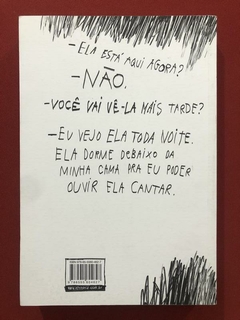 -ELA ESTÁ AQUI AGORA?
-NÃO.
-VOCÊ VAI VÊ-LA MAIS TARDE?
-EU VEJO ELA TODA NOITE.
ELA DORME DEBAIXO DA
MINHA CAMA PRA EU PODER
OUVIR ELA CANTAR.